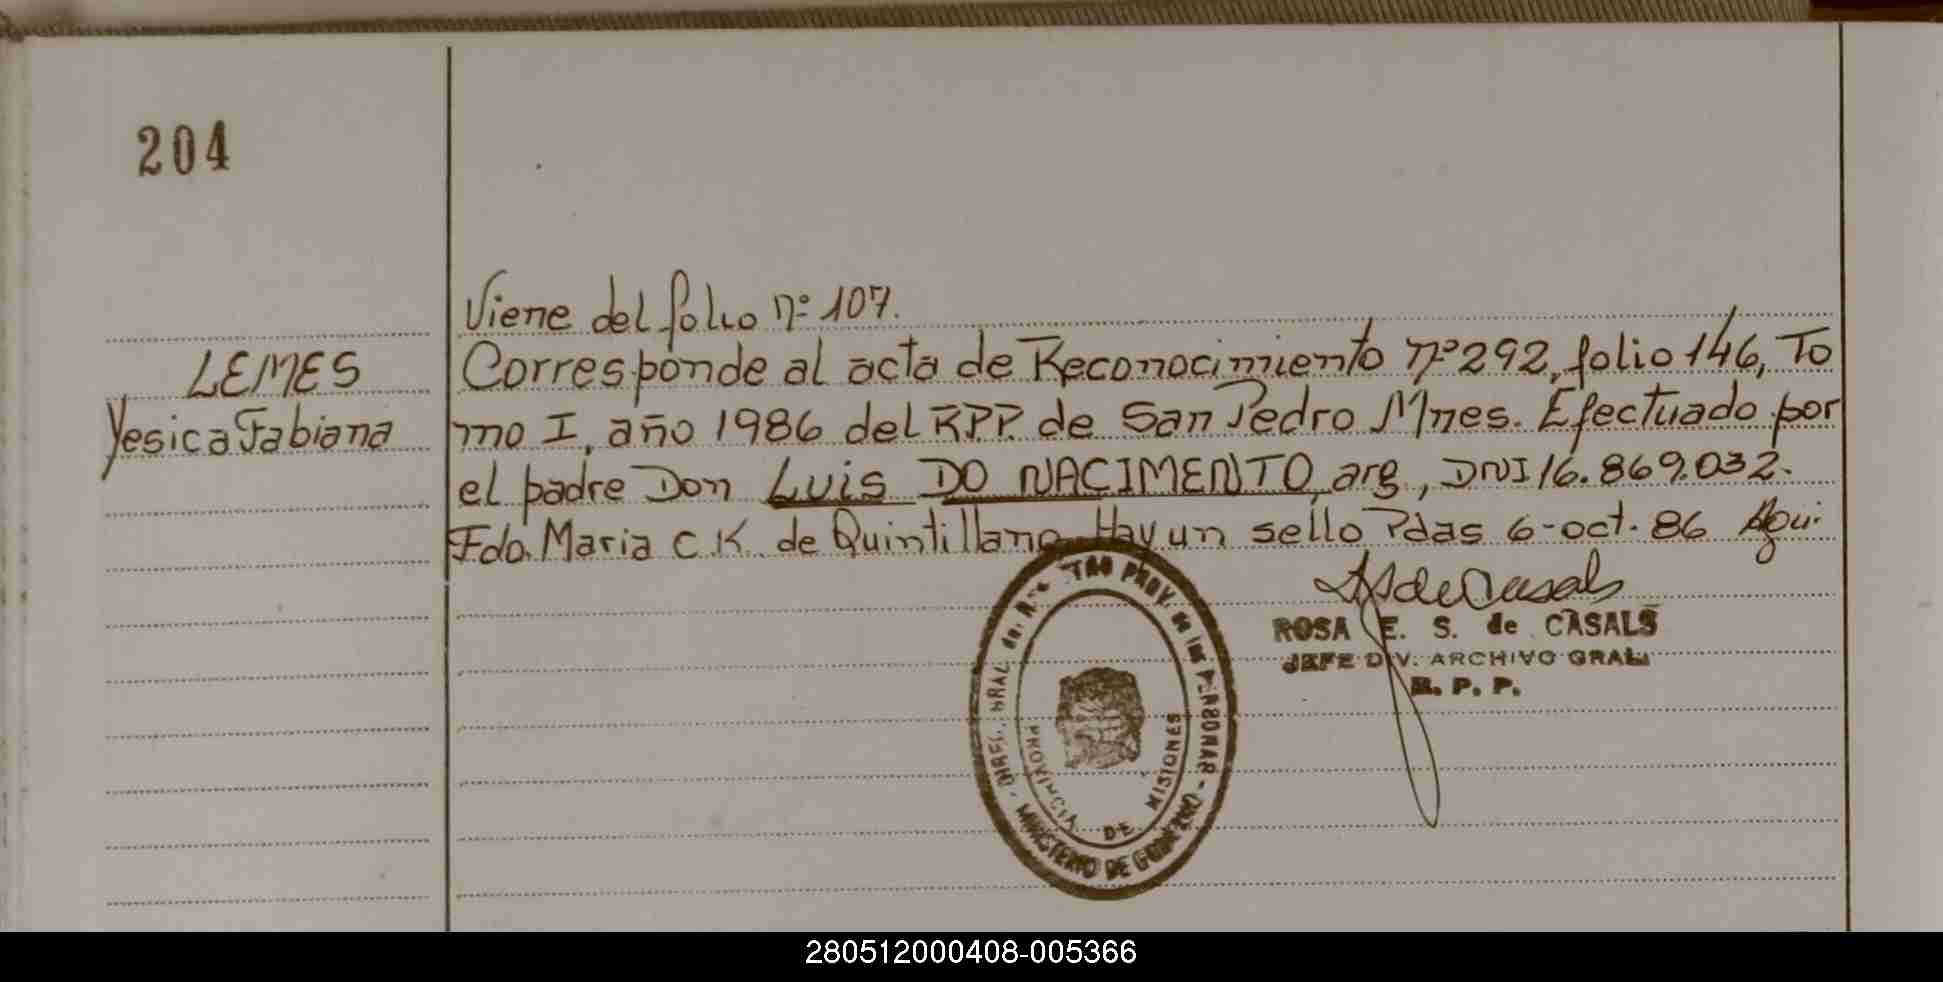 204
Viene del folio nº 107.
LEMES
Yesica Fabiana
Corresponde al acta de Reconocimiento nº 292, folio 146, To
mo I, año 1986 del RPP. de San Pedro Mnes. Efectuado por
el padre Don Luis DO NACIMENTO, arg, DNI 16.869.032.
Fdo. Maria C.K. de Quintillano Hay un sello Pdas 6-oct-86
ROSA E. S. de CASALS
JEFE DIV. ARCHIVO GRAL.
R. P. P.
PROV. de las PERSONAS - MINISTERIO DE GOBIERNO
PROVINCIA DE MISIONES
280512000408-005366